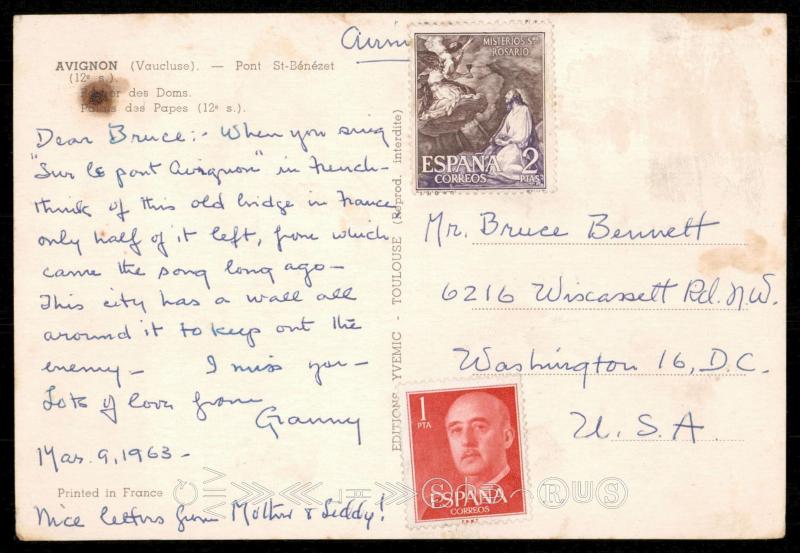 AVIGNON (Vaucluse). — Pont St-Bénézet
(12e s.).
Rocher des Doms.
Palais des Papes (12e s.).
Dear Bruce:- When you sing
"Sur le pont Avignon" in French-
think of this old bridge in France
only half of it left, from which
came the song long ago-
This city has a wall all
around it to keep out the
enemy- I miss you-
Lots of love from
Granny
Mar. 9, 1963-
Printed in France
Nice letters from Mother &
EDITIONS YVEMIC - TOULOUSE (Reprod. interdite)
MISTERIOS Sto
ROSARIO
ESPAÑA 2
CORREOS PTAS
Mr. Bruce Bennett
6216 Wiscassett Rd. N.W.
Washington 16, D.C.
U.S.A
1
PTA
ESPAÑA
CORREOS